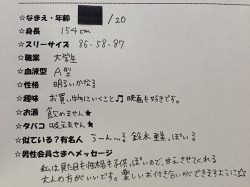 ☆なまえ・年齢 /20
☆身長 154cm
☆スリーサイズ 86・58・87
☆職業 大学生
☆血液型 A型
☆性格 明るいかなぁ
☆趣味 お買い物にいくこと♪映画も好きです。
☆お酒 飲めません♥
☆タバコ 吸えません♥
☆似ている?有名人 うーん…る 鈴木 っぽいる
☆男性会員さまへメッセージ
私は、見た目も性格も子供っぽいので、甘えさせてくれる
大人の方がいいです。楽しいお付き合いができますように